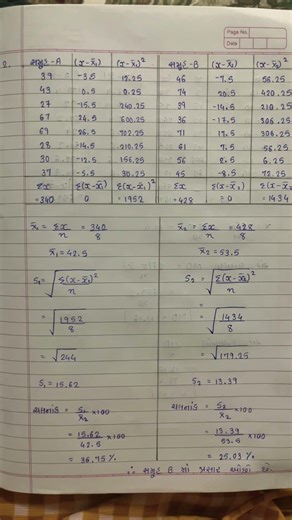 Page No.
Date
2. સમૂહ-A (x-x̄₁) (x-x̄₁)² સમૂહ-B (x-x̄₂) (x-x̄₂)²
39 -3.5 12.25 46 -7.5 56.25
43 0.5 0.25 74 20.5 420.25
27 -15.5 240.25 39 -14.5 210.25
67 24.5 600.25 36 -17.5 306.25
69 26.5 702.25 71 17.5 306.25
28 -14.5 210.25 61 7.5 56.25
30 -12.5 156.25 56 2.5 6.25
37 -5.5 30.25 45 -8.5 72.25
Σx Σ(x-x̄₁) Σ(x-x̄₁)² Σx Σ(x-x̄₂) Σ(x-x̄₂
=340 0 =1952 =428 =0 =1434
x̄₁ = Σx/n = 340/8
x̄₁ = 42.5
S₁ = √Σ(x-x̄₁)²/n
= √1952/8
= √244
S₁ = 15.62
ચલનાંક = S₁/x̄₁ ×100
= 15.62/42.5 ×100
= 36.75%
x̄₂ = Σx/n = 428/8
x̄₂ = 53.5
S₂ = √Σ(x-x̄₂)²/n
= √1434/8
= √179.25
S₂ = 13.39
ચલનાંક = S₂/x̄₂ ×100
= 13.39/53.5 ×100
= 25.03%
∴ સમૂહ B માં પ્રસાર ઓછો છે.